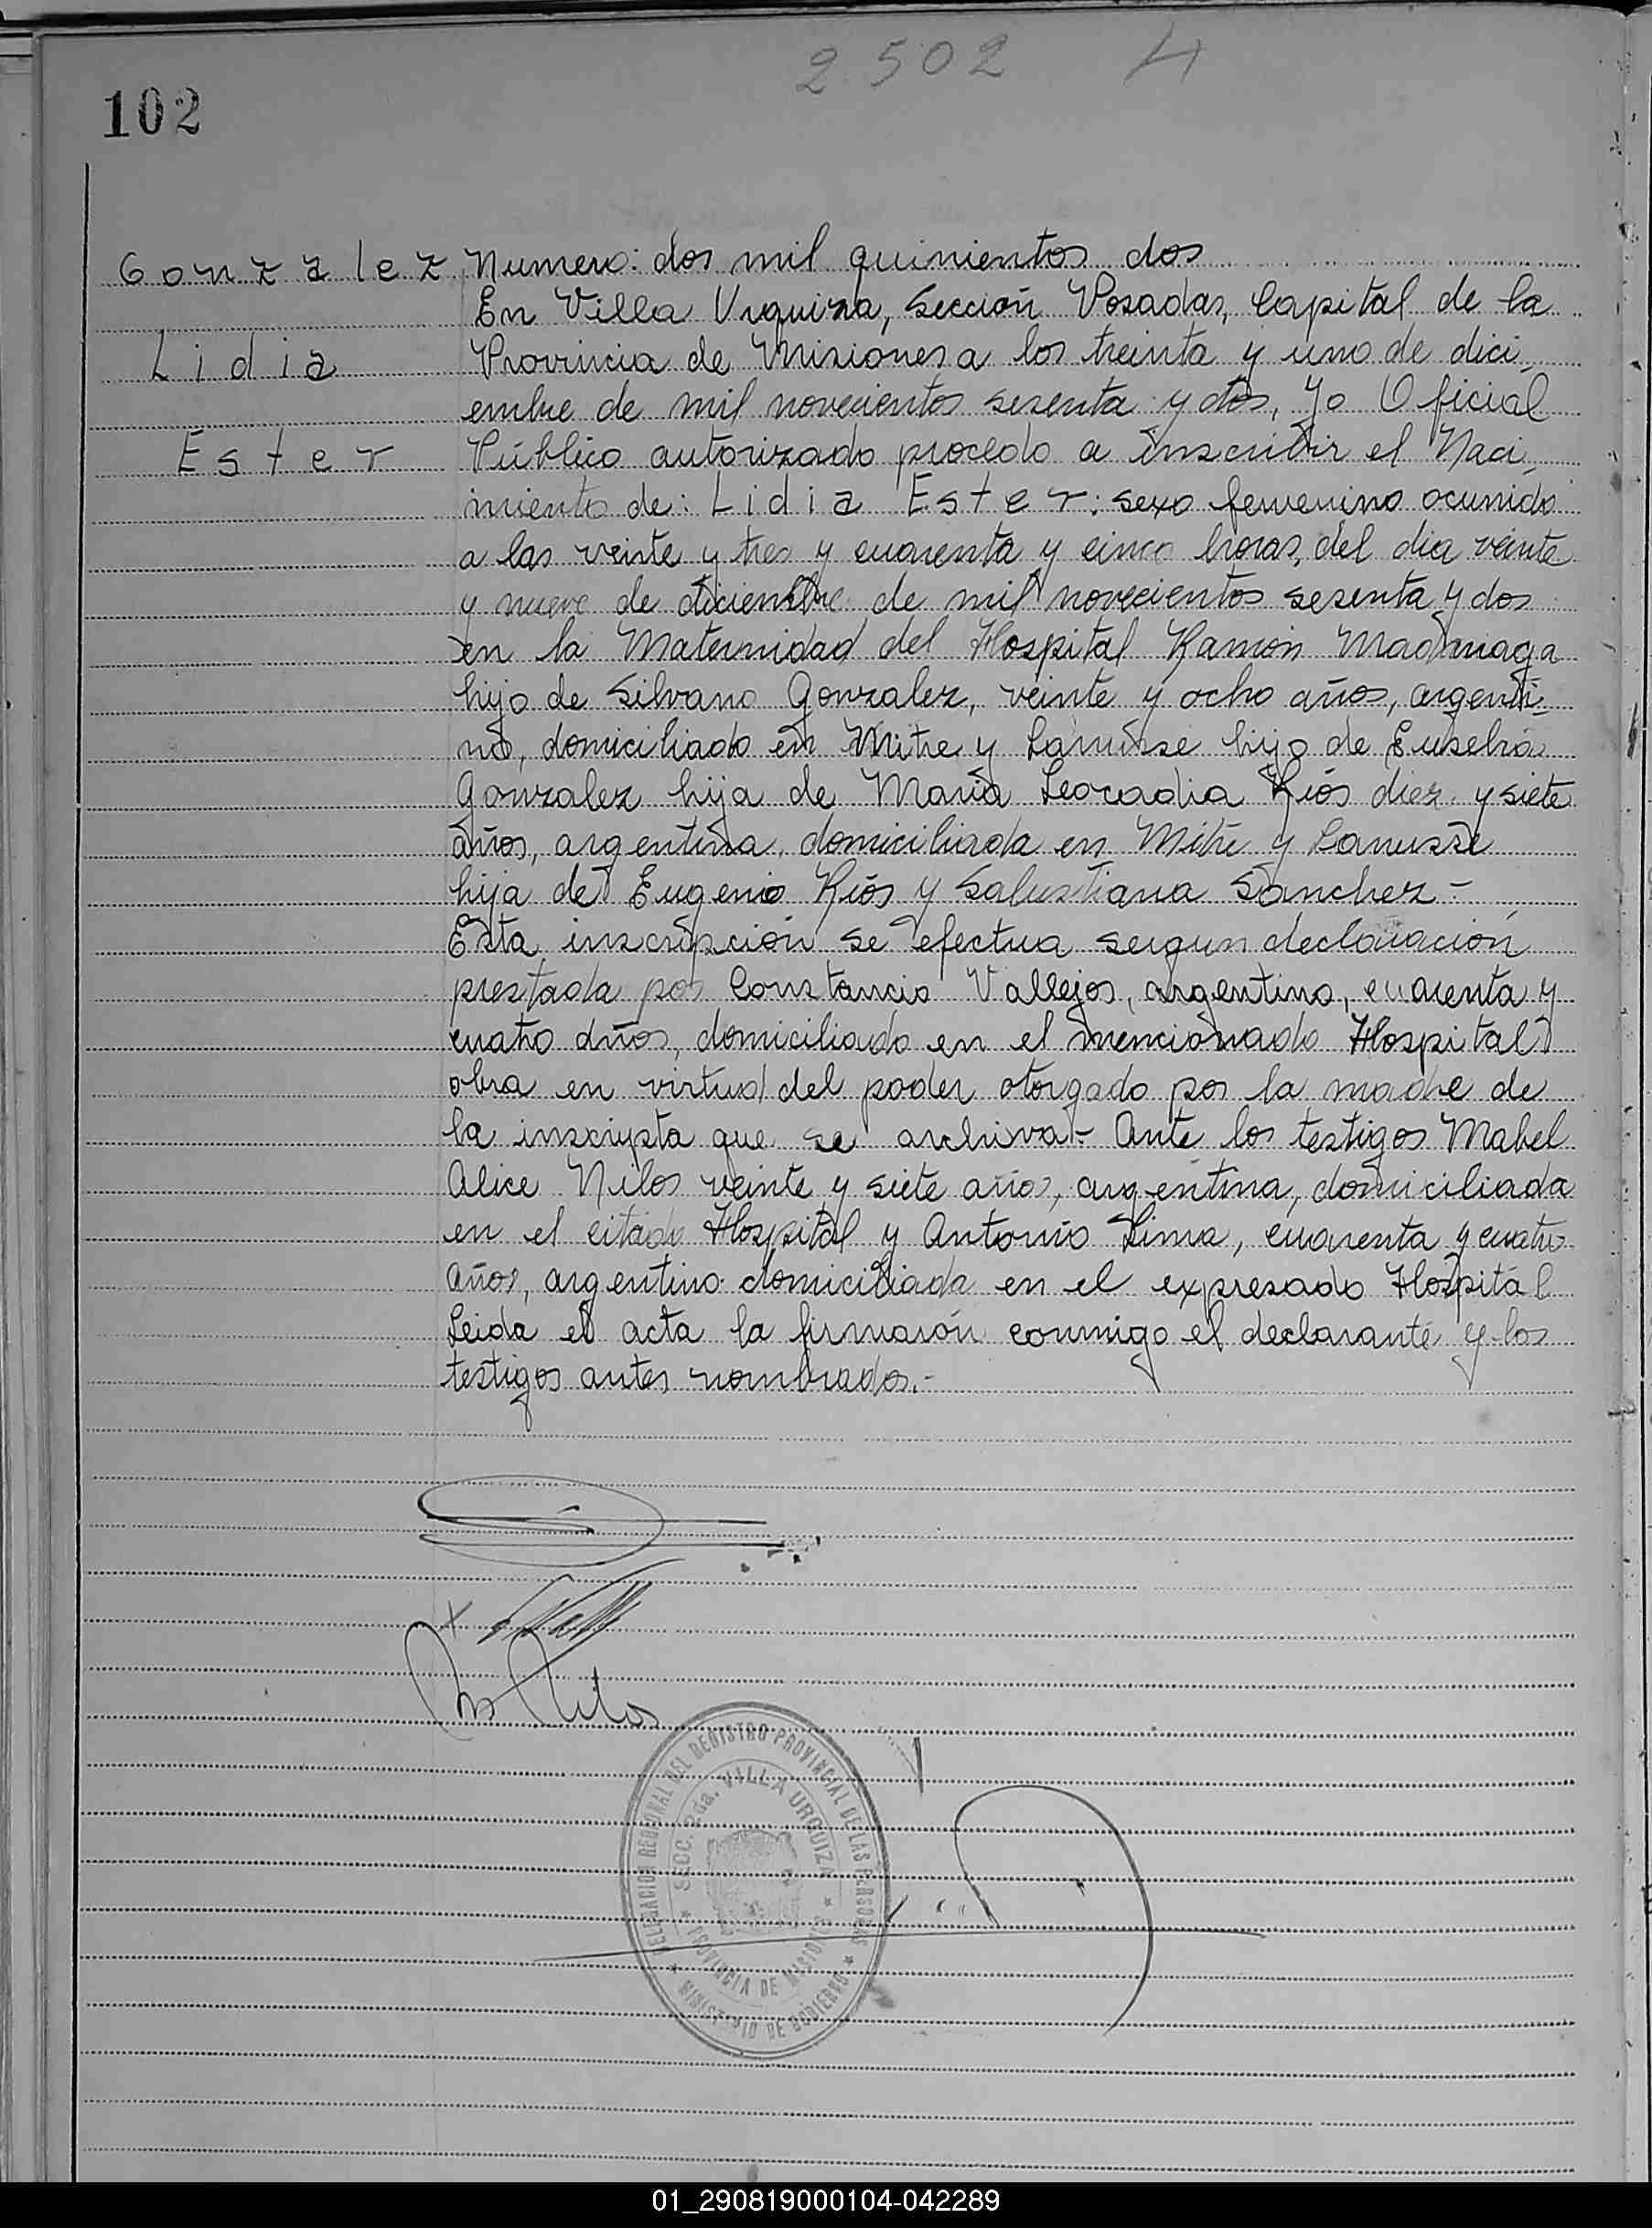 2502 H
102
Gonzalez Numero: dos mil quinientos dos
En Villa Urquiza, Sección Posadas, Capital de la
Lidia Provincia de Misiones a los treinta y uno de dici-
embre de mil novecientos sesenta y dos, Yo Oficial
Ester Público autorizado procedo a inscribir el Naci-
miento de: Lidia Ester: sexo femenino ocurrido
a las veinte y tres y cuarenta y cinco horas, del dia veinte
y nueve de diciembre de mil novecientos sesenta y dos
en la Maternidad del Hospital Ramón Madariaga
hijo de Silvano Gonzalez, veinte y ocho años, argenti-
no, domiciliado en Mitre y Lanusse hijo de Eusebia
Gonzalez hija de Maria Leocadia Ríos diez y siete
años, argentina, domiciliada en Mitre y Lanusse
hija de Eugenio Ríos y Salustiana Sanchez.-
Esta inscripción se efectua sergun declaración
prestada por Constancio Vallejos, argentino, cuarenta y
cuatro años, domiciliado en el mencionado Hospital
obra en virtud del poder otorgado por la madre de
la inscripta que se archiva.- Ante los testigos Mabel
Alice Nilos veinte y siete años, argentina, domiciliada
en el citado Hospital y Antonio Lima, cuarenta y cuatro
años, argentino domiciliada en el expresado Hospital
Leida el acta la firmarón conmigo el declarante y los
testigos antes nombrados.-
Nilos
DELEGACION REGIONAL DEL REGISTRO PROVINCIAL DE LAS PERSONAS
SECC. 2da. VILLA URQUIZA
PROVINCIA DE MISIONES
MINISTERIO DE GOBIERNO
01_290819000104-042289